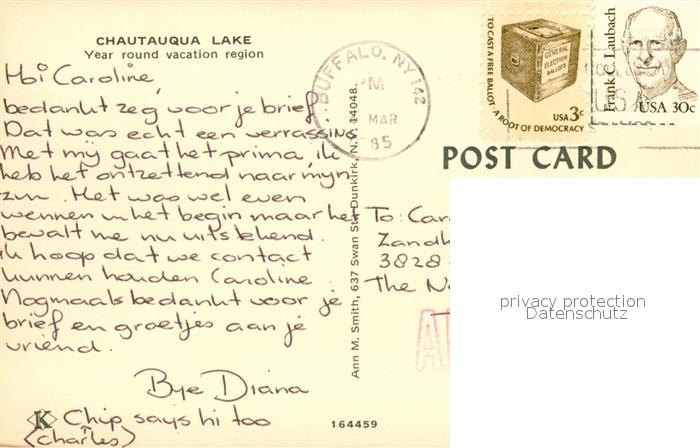 CHAUTAUQUA LAKE
Year round vacation region
Hoi Caroline,
bedankt zeg voor je brief.
Dat was echt een verrassing
Met mij gaat het prima, ik
heb het ontzettend naar mijn
zin. Het was wel even
wennen in het begin maar het
bevalt me nu uitstekend.
ik hoop dat we contact
kunnen houden Caroline.
Nogmaals bedankt voor je
brief en groetjes aan je
vriend.
Bye Diana
K Chip says hi too
(charles)
164459
Ann M. Smith, 637 Swan St., Dunkirk, N.Y. 14048
BUFFALO, NY 142
PM
MAR
85
TO CAST A FREE BALLOT · A ROOT OF DEMOCRACY
GENERAL
ELECTION
BALLOTS
USA 3c
Frank C. Laubach
USA 30c
POST CARD
To: Car
Zandh
3828
The N
privacy protection
Datenschutz